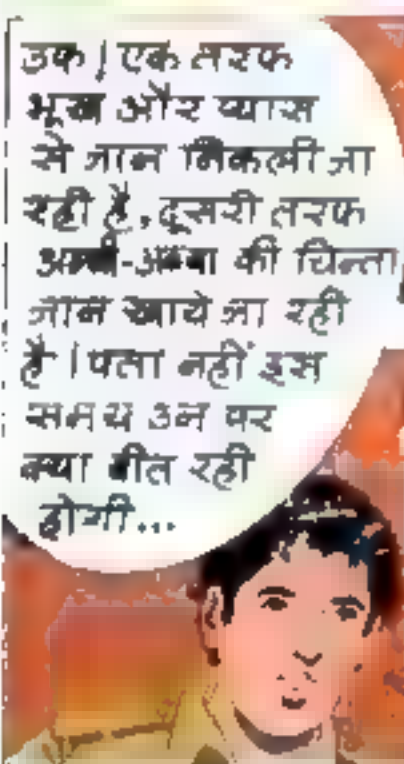 उफ! एक तरफ
भूख और प्यास
से जान निकली जा
रही है, दूसरी तरफ
अम्मी-अब्बा की चिन्ता
जान खाये जा रही
है। पता नहीं इस
समय उन पर
क्या बीत रही
होगी...